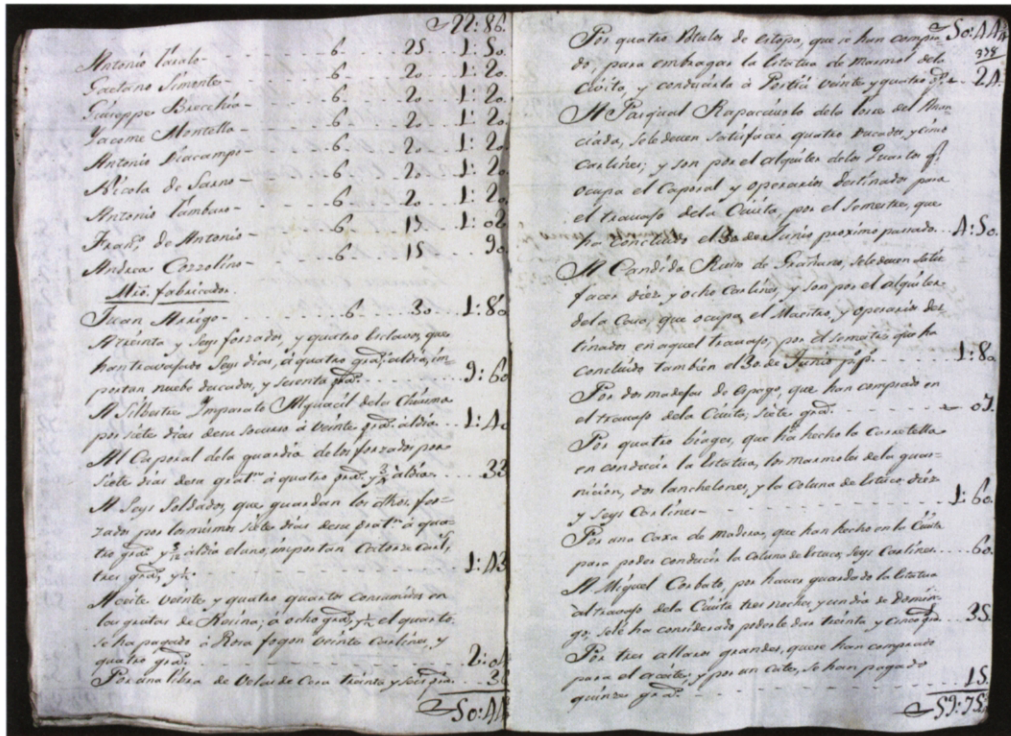 22:86
Antonio Iaralo - 6 - 25 - 1:50
Gaetano Simonte - 6 - 20 - 1:20
Giuseppe Brecchia - 6 - 20 - 1:20
Yacome Montella - 6 - 20 - 1:20
Antonio Scacampi - 6 - 20 - 1:20
Nicola de Sarno - 6 - 20 - 1:20
Antonio Tamburo - 6 - 20 - 1:20
Fran.co de Antonio - 6 - 17 - 1:02
Andrea Cozzolino - 6 - 15 - 90
Mro. fabricador
Juan Arrigo - 6 - 30 - 1:80
A treinta y seys forzados, y quatro esclavos, que
han travajado seys dias, à quatro gras. al dia, im-
portan nuebe ducados, y sesenta gras. 9:60
A Silbestre Imparato Alguacil dela Chusma
por siete dias de su socurso à veinte gras. al dia 1:40
Al Caporal dela guardia de los forzados por
siete dias de su à quatro gras. y al dia 32
A Seys Soldados, que guardan los dhos. for-
zados por los mismos siete dias de su à qua-
tro gras. y al dia el uno, importan Catorze Carls.
tres gras. y 1:43
Aceite veinte y quatro quartos consumidos en
las grutas de Resina; à ocho gras. y el quarto,
se ha pagado à Rosa fogon veinte carlines, y
quatro gras. 2:04
Por una libra de Velas de Cera treinta y gras. 3
50:44
50:44
Por quatro Rotulos de estopa, que se han compra-
do, para embragar la estatua de marmol dela
Cavita, y conducirla à Portici veinte y quatro gras. 24
A Pasqual Rapacciuolo dela torre del Anun-
ciada, se le deven satisfacer quatro Ducados, y cinco
Carlines; y son por el alquiler delos Quartos q.
ocupa el Caporal y operarios destinados para
el travajo dela Cavita, por el semestre, que
ha concluido el 30 de Junio proximo passado. 4:50
A Candida Ruso de Grañano, se le deven satis-
facer diez, y ocho Carlines, y son por el alquiler
dela Casa, que ocupa el Maestro, y operarios des-
tinados en aquel travajo, por el semestre que ha
concluido tambien el 30 de Junio 1:80
Por dos madejas de Spago, que han comprado en
el travajo dela Cavita; siete gras. 07
Por quatro biages, que ha hecho la Carretella
en conducir la estatua, los marmoles dela guar-
nicion, dos lanchelones, y la coluna de estuco diez
y seys Carlines - 1:60
Por una Caxa de madera, que han hecho en la Cavita
para poder conducir la coluna de estuco, seys Carlines 60
A Miguel Corbato, por haver guardado la estatua
al travajo dela Cavita tres noches, y un dia de domin-
go, se le ha considerado poderle dar treinta y cinco gras. 35
Por tres allaros grandes, que se han comprado
para el azeite; y por un Cato, se han pagado
quinze gras. 15
59:75